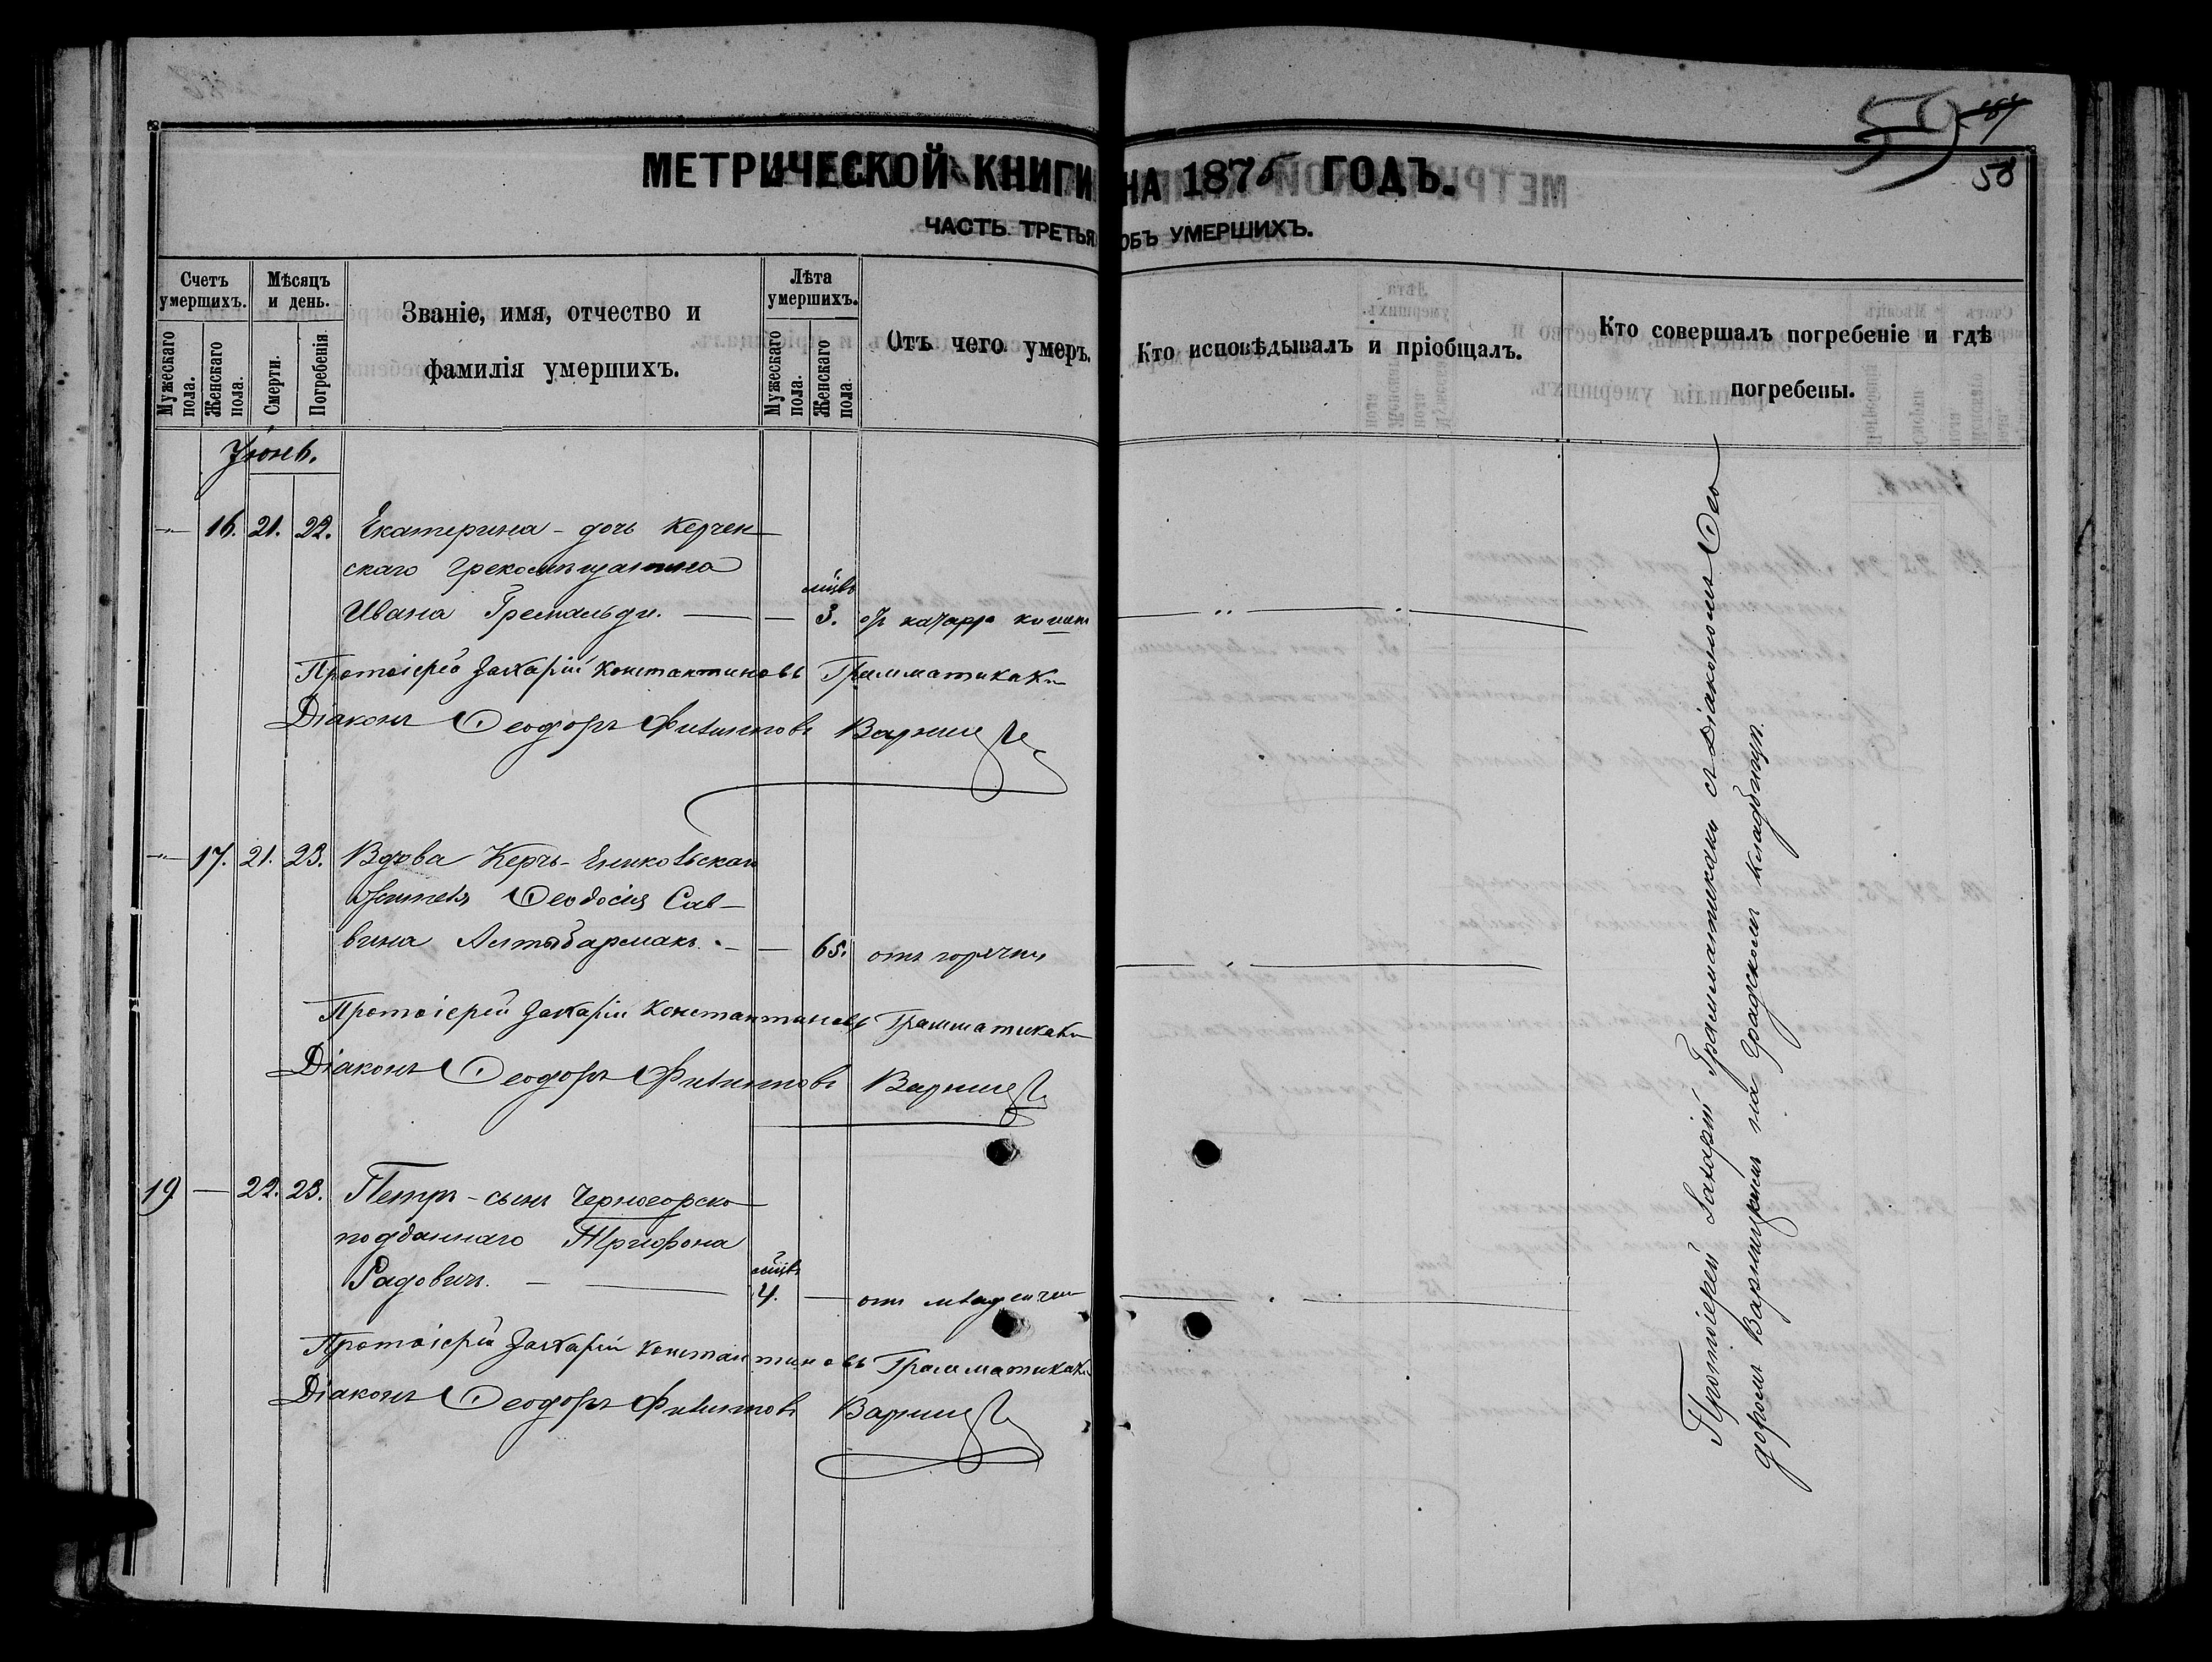 59 
58
МЕТРИЧЕСКОЙ КНИГИ НА 1875 ГОДЪ.
ЧАСТЬ ТРЕТЬЯ ОБЪ УМЕРШИХЪ.
Счетъ умершихъ.
Мужескаго пола.
Женскаго пола.
Мѣсяцъ и день.
Смерти.
Погребенія
Званіе, имя, отчество и
фамилія умершихъ.
Лѣта умершихъ.
Мужескаго пола.
Женскаго пола.
Отъ чего умеръ.
Кто исповѣдывалъ и пріобщалъ.
Кто совершалъ погребеніе и гдѣ
погребены.
Іюнь.
16. 21. 22. Екатерина - дочь Керчен
скаго Грекомѣщанина
мѣсѣ
Ивана Гремальди. — — 3. отъ катарра кишекъ
Протоіерей Захарій Константиновъ Грамматикаки
Діаконъ Ѳеодоръ Филипповъ
17. 21. 23. Вдова Керчь-Еникольская
Ѳеодосія Сав-
вина Алтыбармакъ. — — 65. отъ горячки
Протоіерей Захарій Константиновъ Грамматикаки
Діаконъ Ѳеодоръ Филипповъ
19 — 22. 23. Петръ - сынъ Черногорско
подданнаго Трифона
мѣсѣ
Радовичъ. — 4. — отъ младенчес
Протоіерей Захарій Константиновъ Грамматикаки
Діаконъ Ѳеодоръ Филипповъ
Протоіерей Захарій Грамматикаки съ Діакономъ Ѳео
доромъ на Градскомъ кладбищѣ.